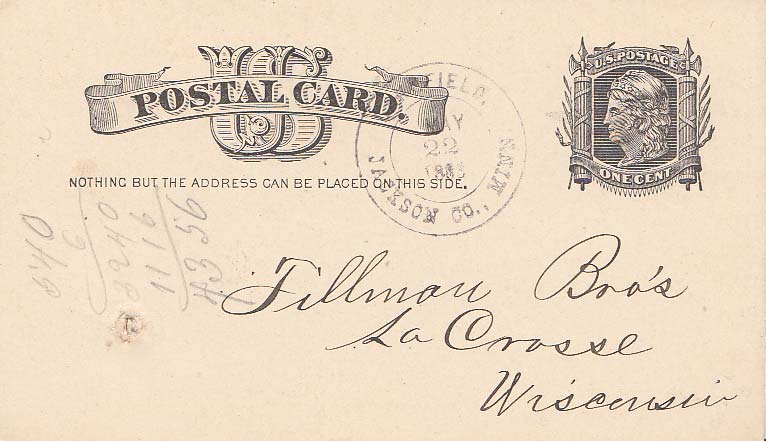 US
POSTAL CARD.
NOTHING BUT THE ADDRESS CAN BE PLACED ON THIS SIDE.
FIELD,
22
JACKSON CO., MINN
U.S. POSTAGE
ONE CENT
540
6
3240
1116
4356
Tillman Bro's
La Crosse
Wisconsin